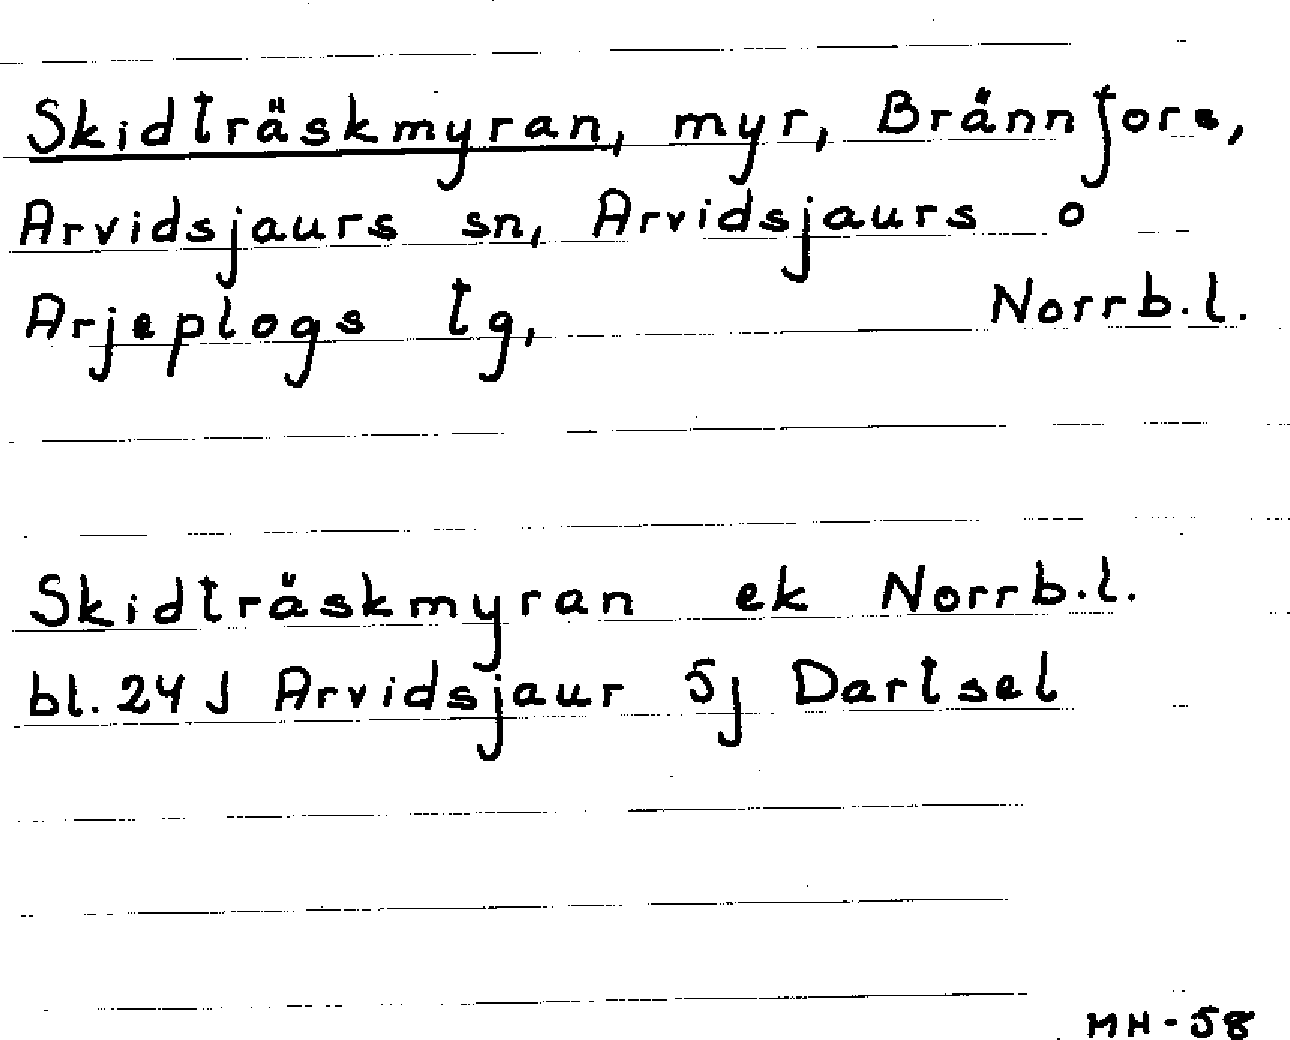 Skidträskmyran, myr, Brännfors,
Arvidsjaurs sn, Arvidsjaurs o
Arjeplogs tg, Norrb.l.
Skidträskmyran ek Norrb.l.
bl. 24 J Arvidsjaur 5j Dartsel
MH-58